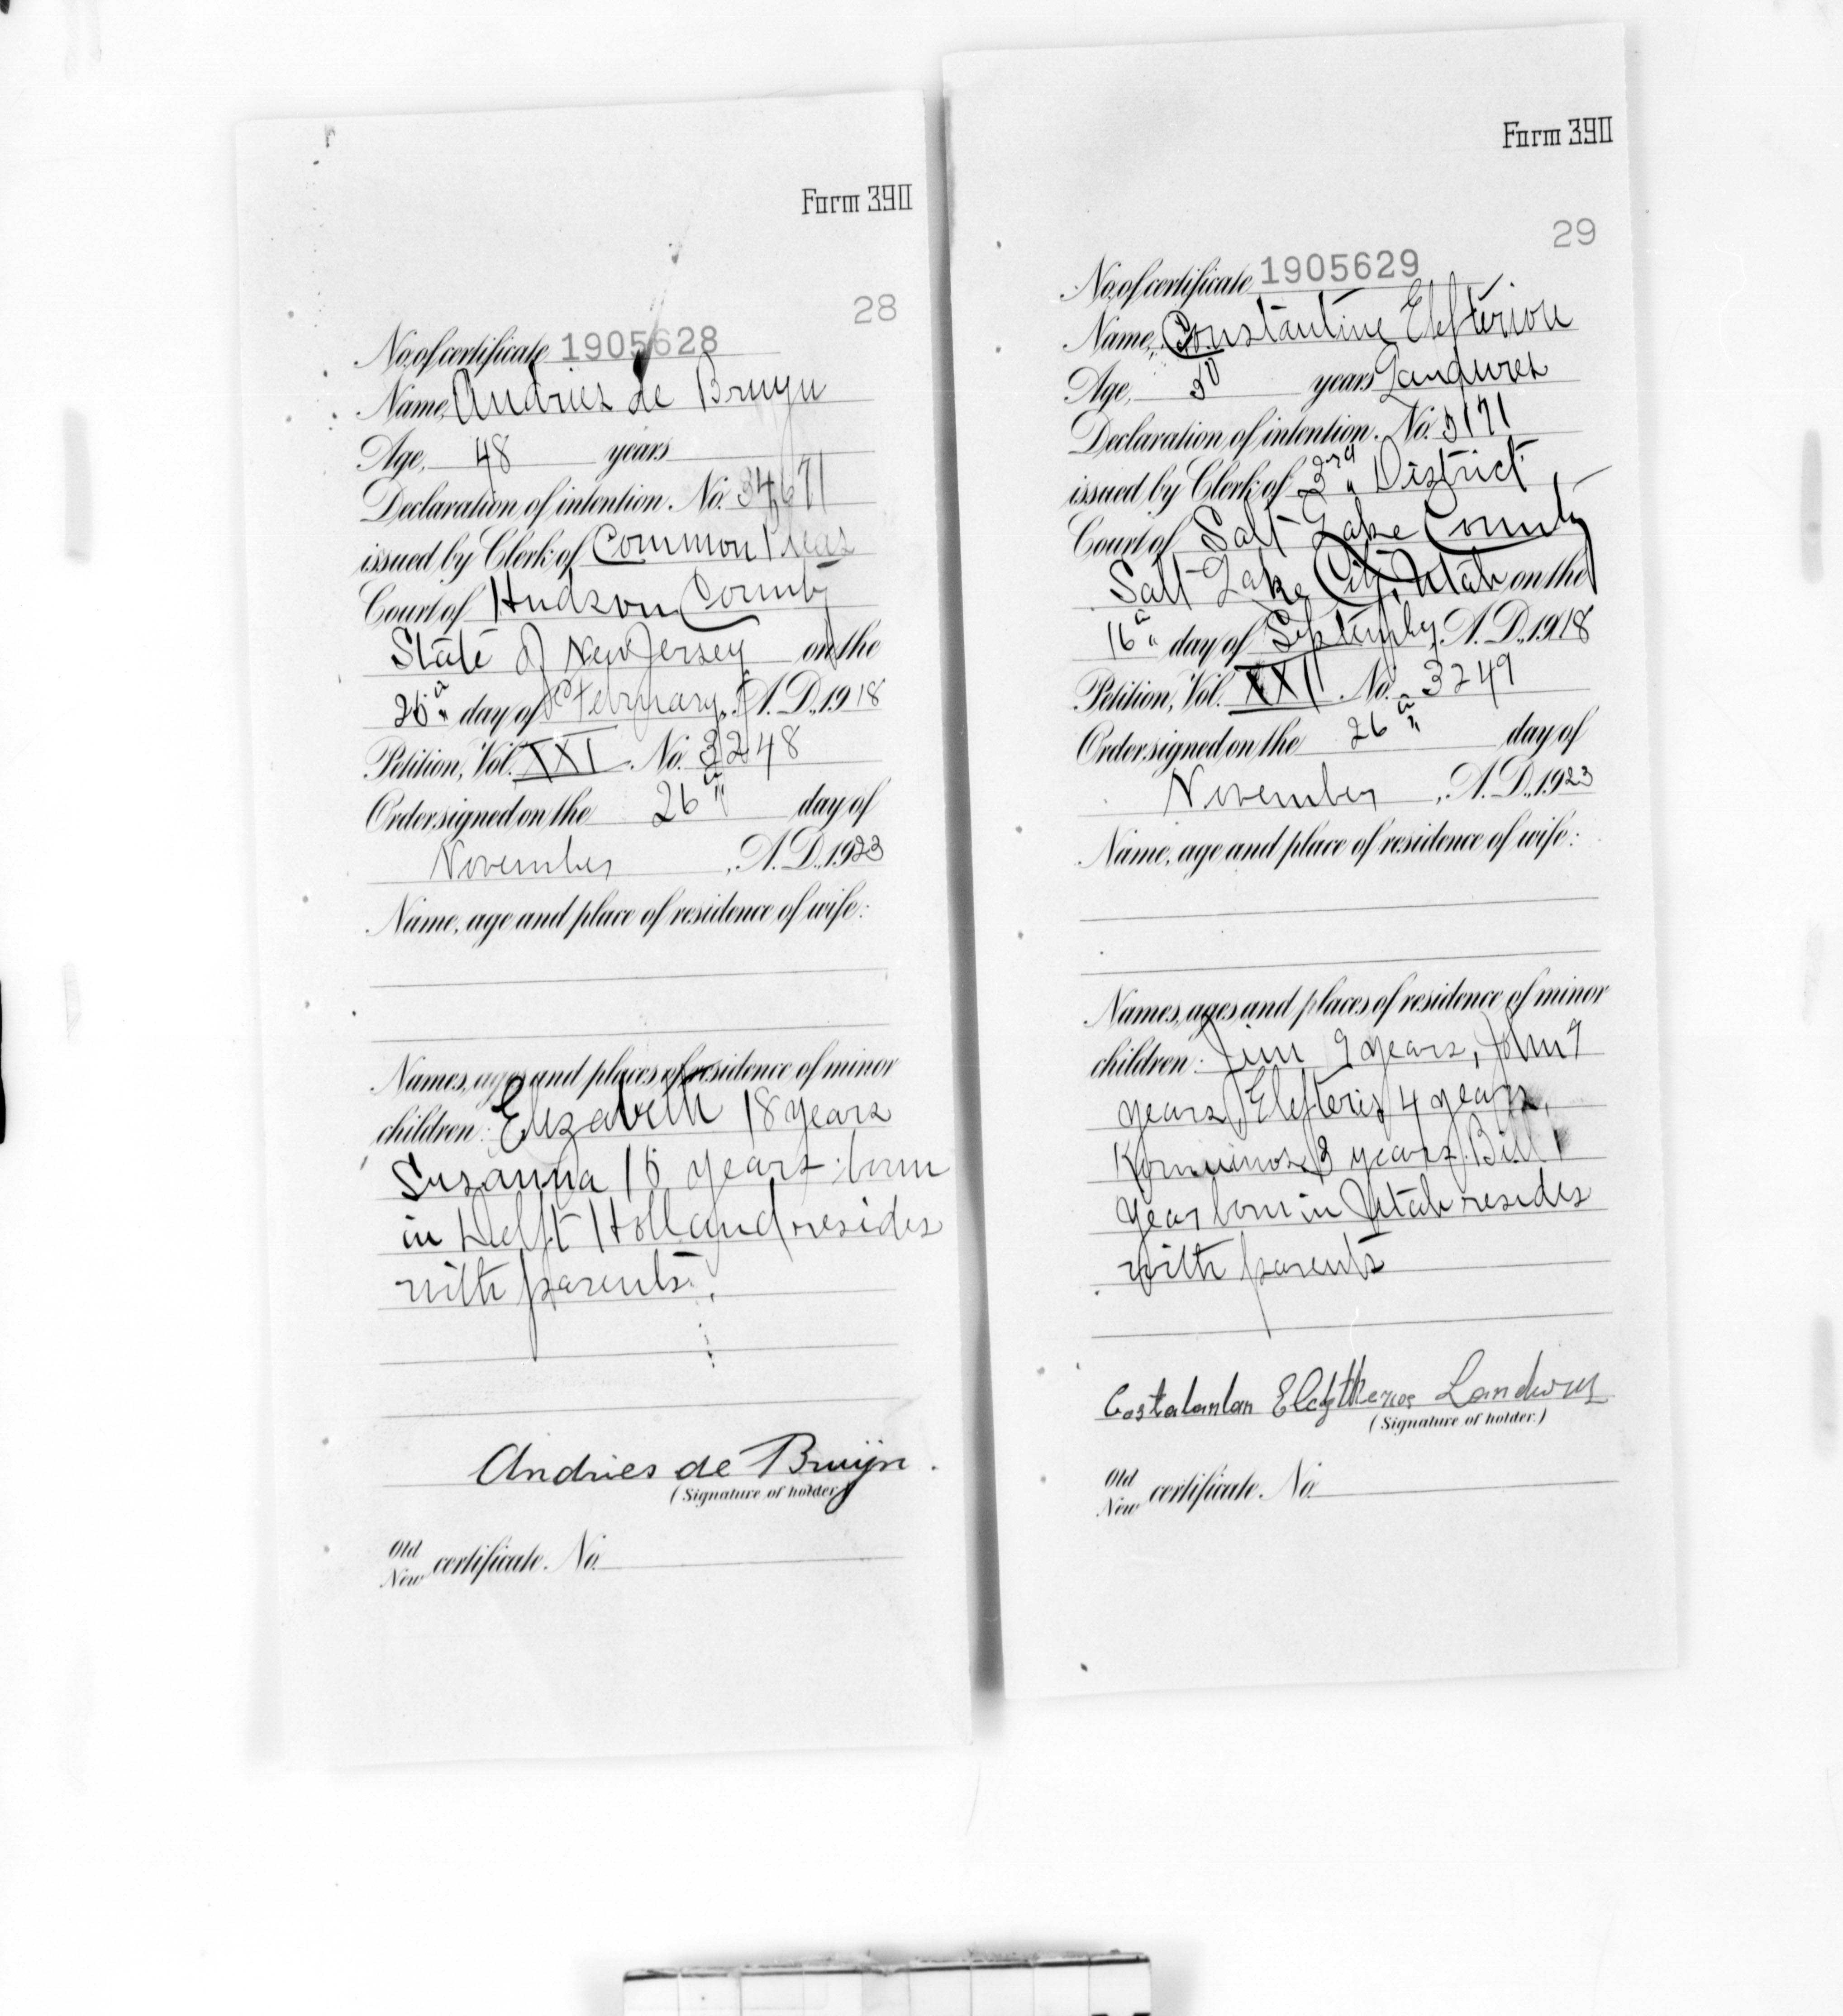 Form 390
28
No. of certificate 1905628
Name, Andries de Bruyn
Age, 48 years
Declaration of intention. No. 34671
issued by Clerk of Common Pleas
Court of Hudson County
State of New Jersey on the
26" day of February, A. D., 1918
Petition, Vol. XXI No. 3248
Order signed on the 26" day of
November, A. D., 1923
Name, age and place of residence of wife:
Names, ages and places of residence of minor
children: Elizabeth 18 years
Susanna 16 years born
in Delft Holland resides
with parents
Andries de Bruijn.
(Signature of holder.)
Old
New certificate. No.
Form 390
29
No. of certificate 1905629
Name, Constantine Elefteriou
Age, years
Declaration of intention. No. 3171
issued by Clerk of 3rd District
Court of Salt Lake County
Salt Lake City, Utah on the
16" day of September, A. D., 1918
Petition, Vol. XXI No. 3249
Order signed on the 26" day of
November, A. D., 1923
Name, age and place of residence of wife:
Names, ages and places of residence of minor
children: Jim 9 years, John 7
years, Elefteris 4 years,
3 years, Bill 1
year born in Utah resides
with parents
(Signature of holder.)
Old
New certificate. No.